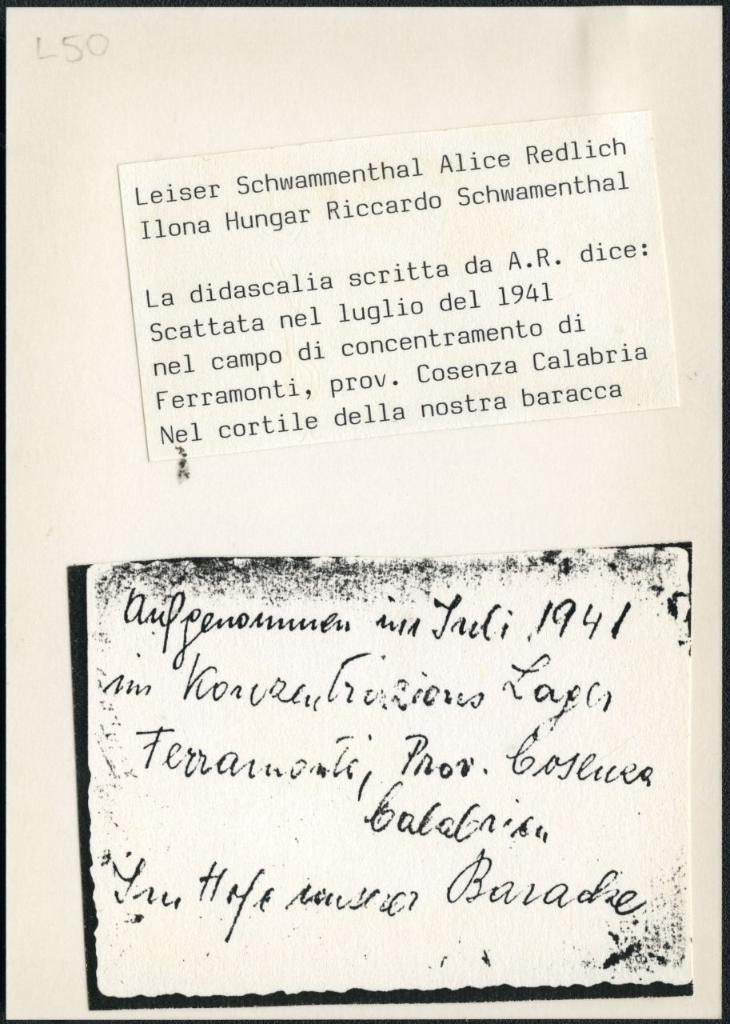 L50
Leiser Schwammenthal Alice Redlich
Ilona Hungar Riccardo Schwamenthal
La didascalia scritta da A.R. dice:
Scattata nel luglio del 1941
nel campo di concentramento di
Ferramonti, prov. Cosenza Calabria
Nel cortile della nostra baracca
Aufgenommen im Juli 1941
im Konzentrazions Lager
Ferramonti, Prov. Cosenza
Calabrien
Im Hofe unserer Baracke